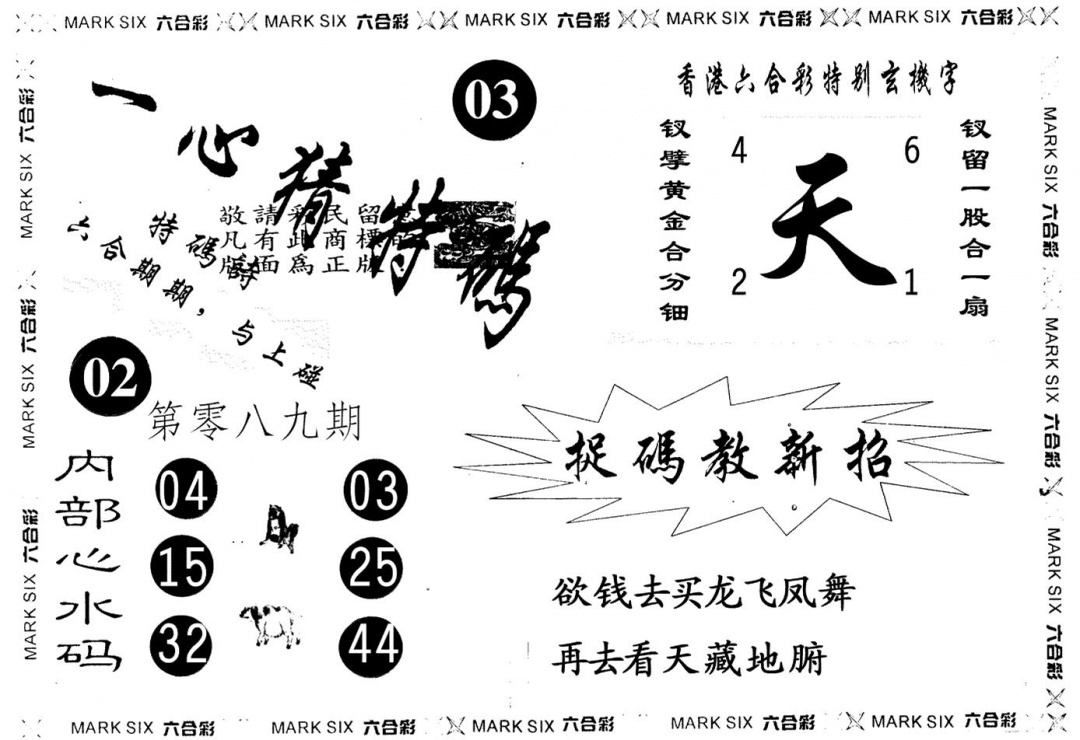 MARK SIX 六合彩 MARK SIX 六合彩 MARK SIX 六合彩 MARK SIX 六合彩 MARK SIX 六合彩
MARK SIX 六合彩 MARK SIX 六合彩 MARK SIX 六合彩
一心猜特碼
03
敬請彩民留意
凡有此商標的
版面為正版
特碼詩
六合期期，与上碰
02
第零八九期
内部心水码
04 03
15 25
32 44
香港六合彩特别玄機字
钗擘黄金合分钿
4 6
天
2 1
钗留一股合一扇
捉碼教新招
欲钱去买龙飞凤舞
再去看天藏地腑
MARK SIX 六合彩 MARK SIX 六合彩 MARK SIX 六合彩
MARK SIX 六合彩 MARK SIX 六合彩 MARK SIX 六合彩 MARK SIX 六合彩 MARK SIX 六合彩